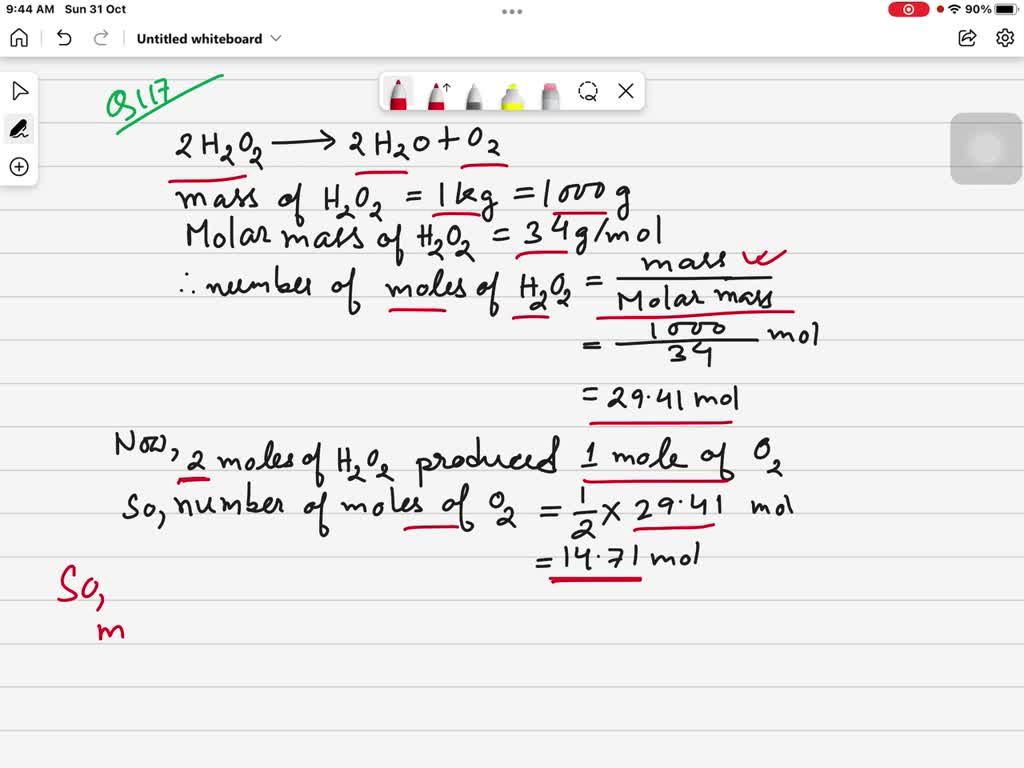 9:44 AM Sun 31 Oct 90%
Untitled whiteboard
Q117
2H₂O₂ → 2H₂O + O₂
mass of H₂O₂ = 1kg = 1000g
Molar mass of H₂O₂ = 34g/mol
∴ number of moles of H₂O₂ = mass / Molar mass
= 1000 / 34 mol
= 29.41 mol
Now, 2 moles of H₂O₂ produced 1 mole of O₂
So, number of moles of O₂ = 1/2 × 29.41 mol
= 14.71 mol
So,
m